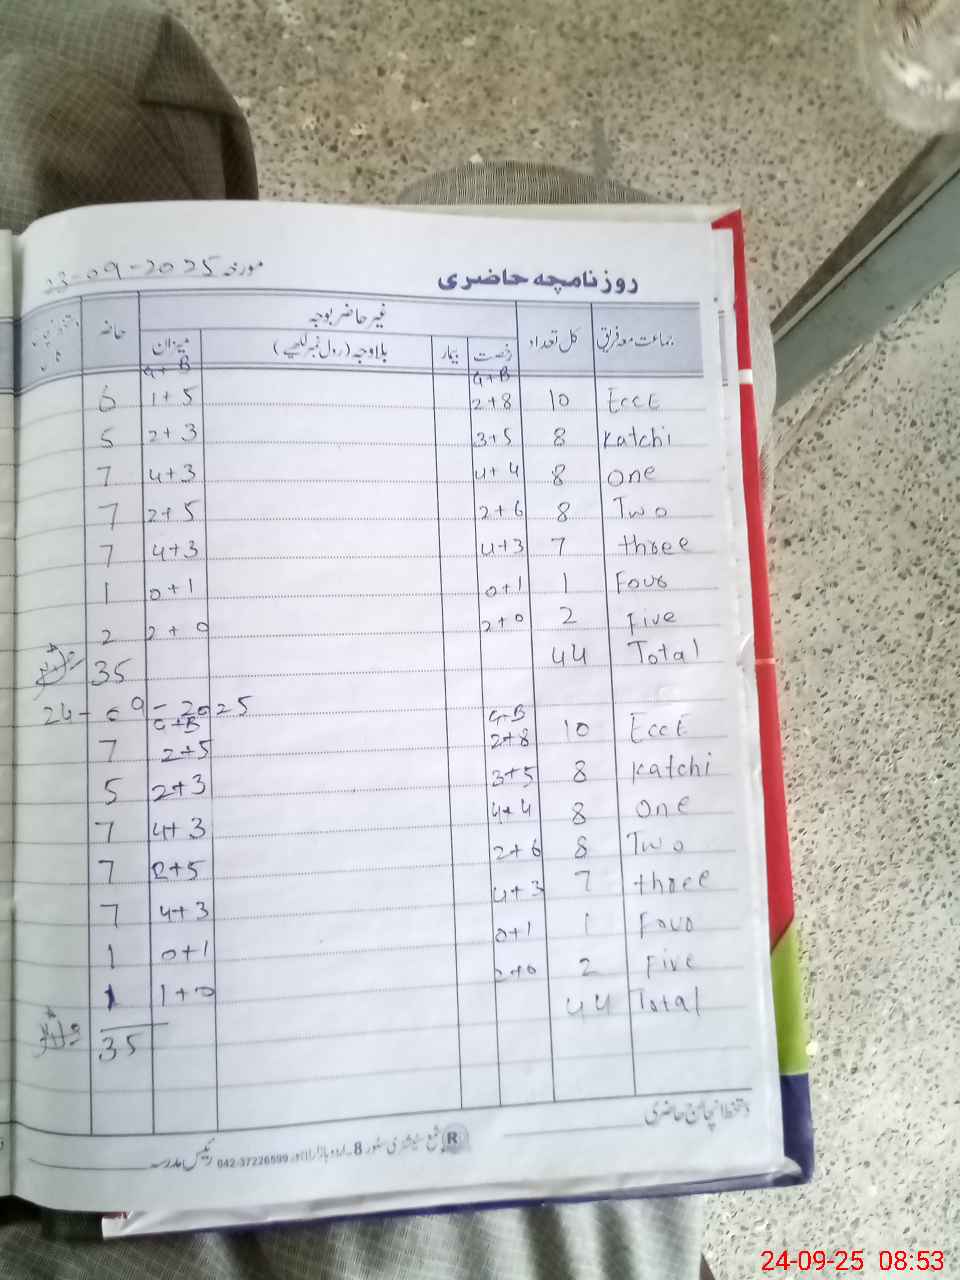 روزنامچہ حاضری مورخہ 23-09-2025
جماعت معہ فریق کل تعداد غیر حاضر بوجہ حاضر
رخصت بیمار بلاوجہ (رول نمبر لکھیے) میزان
G+B G+B
ECCE 10 2+8 1+5 6
Katchi 8 3+5 2+3 5
One 8 4+4 4+3 7
Two 8 2+6 2+5 7
three 7 4+3 4+3 7
Four 1 0+1 0+1 1
Five 2 2+0 2+0 2
Total 44 35
24-09-2025
G+B G+B
ECCE 10 2+8 2+5 7
Katchi 8 3+5 2+3 5
One 8 4+4 4+3 7
Two 8 2+6 2+5 7
three 7 4+3 4+3 7
Four 1 0+1 0+1 1
Five 2 2+0 1+0 1
Total 44
35
دستخط انچارج حاضری
شمع سٹیشنری سٹور 8۔اردو بازار لاہور 042-37226599 رئیس مدرسہ
24-09-25 08:53